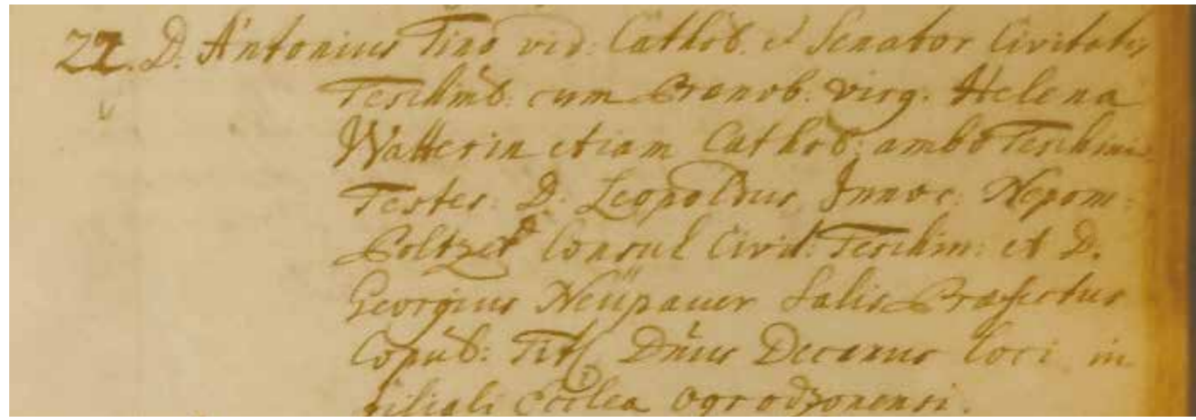 22. D. Antonius Tino vid: Cathol. et Senator Civitatis
Teschinö: cum Pronob. virg. Helena
Walterin etiam Cathol: ambo Teschin:
Testes: D. Leopoldus Innoc: Nepom:
Consul Civit: Teschin: et D.
Georgius Neüpauer Salis Præfectus
Copul: Titl Dnus Decanus loci in
filiali Ecclea Ogrodzonensi.